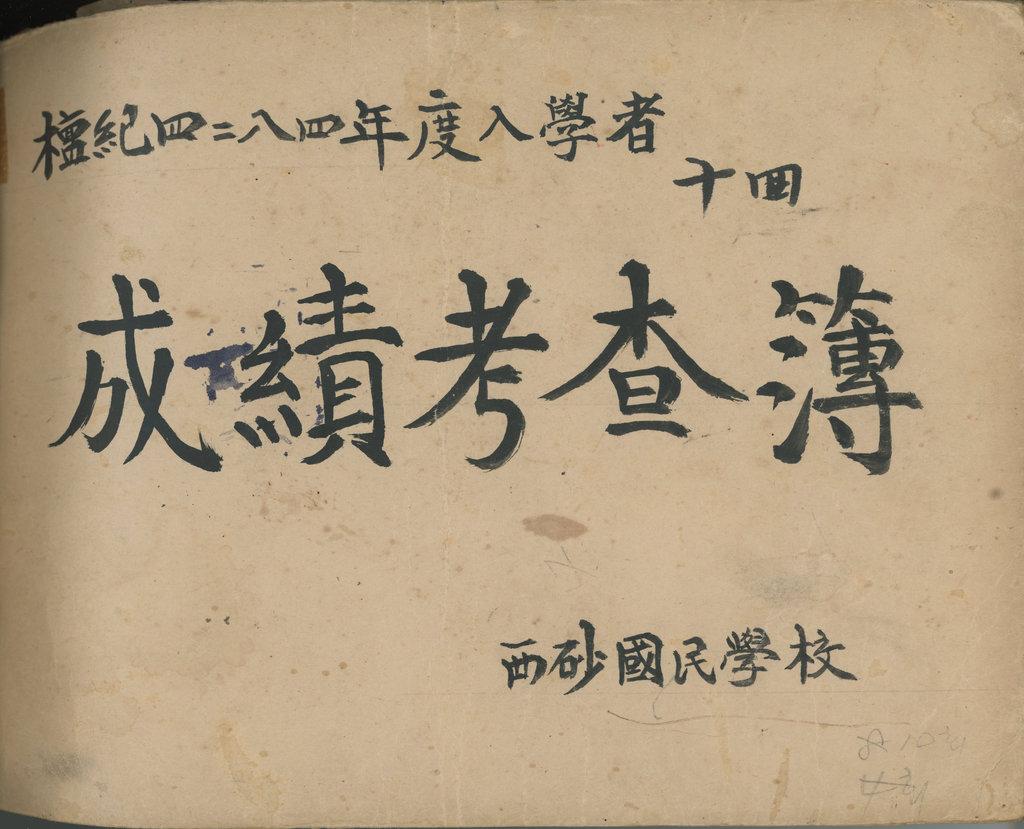 檀紀四二八四年度入學者
十四
成績考査簿
西砂國民學校